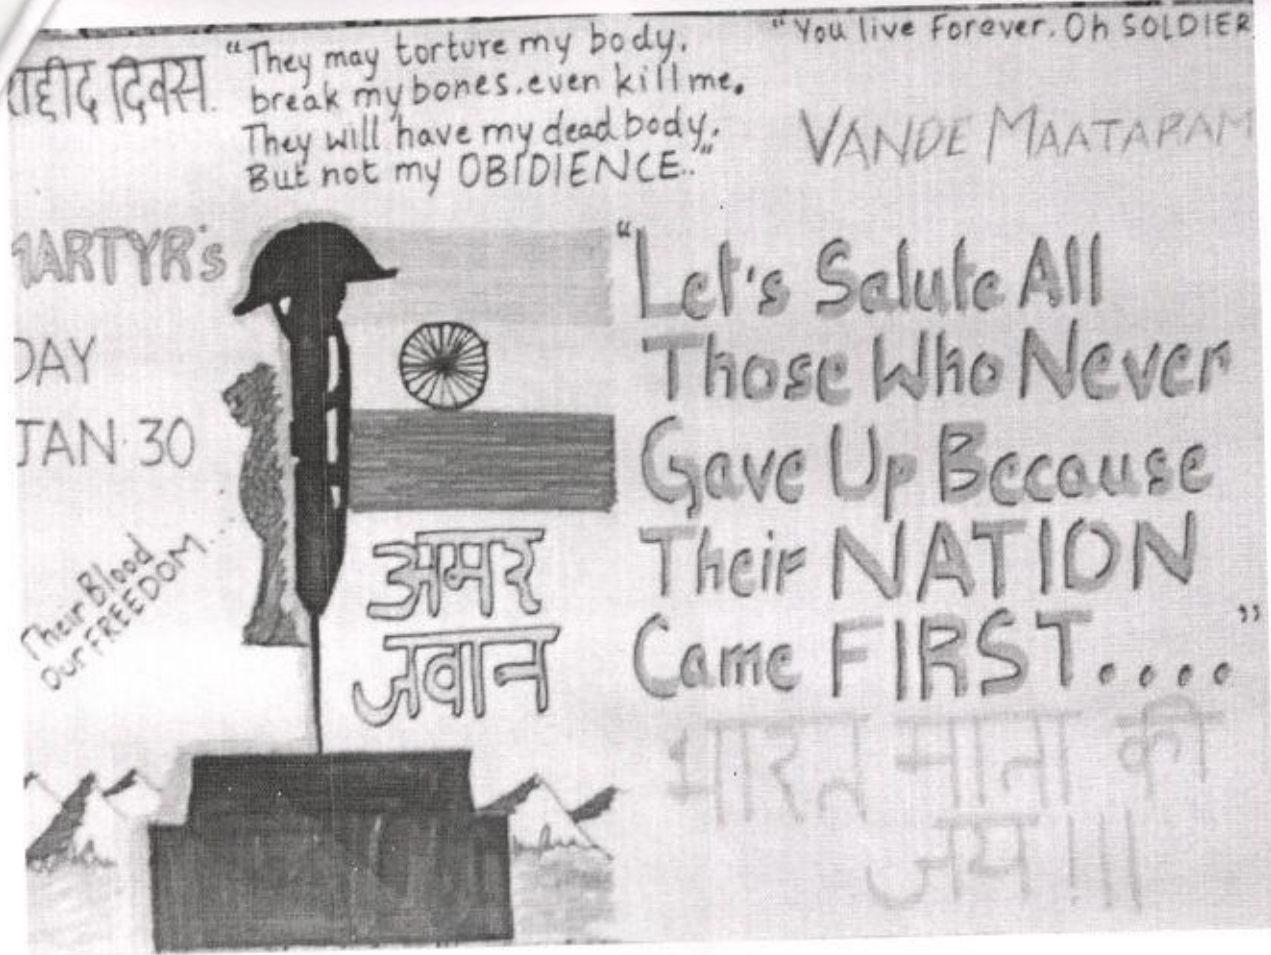 शहीद दिवस.
"They may torture my body,
break my bones, even kill me.
They will have my dead body,
But not my OBIDIENCE.."
"You live Forever. Oh SOLDIER
VANDE MAATARAM
MARTYR's
DAY
JAN 30
Their Blood
Our FREEDOM...
अमर
जवान
"Let's Salute All
Those Who Never
Gave Up Because
Their NATION
Came FIRST...."
भारत माता की
जय!!!